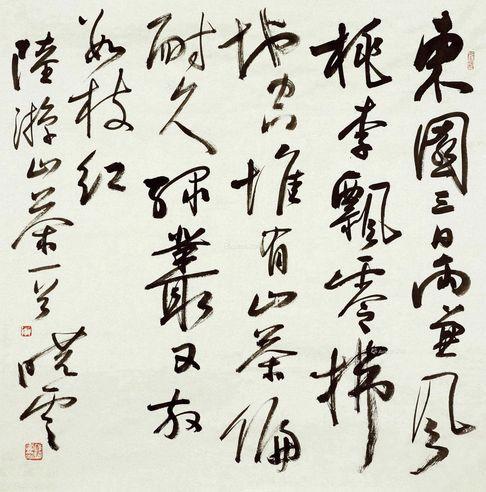 東園三日雨兼風
桃李飄零掃
地空惟有山茶偏
耐久緑叢又放
數枝紅
陸游山茶一首 曉雲